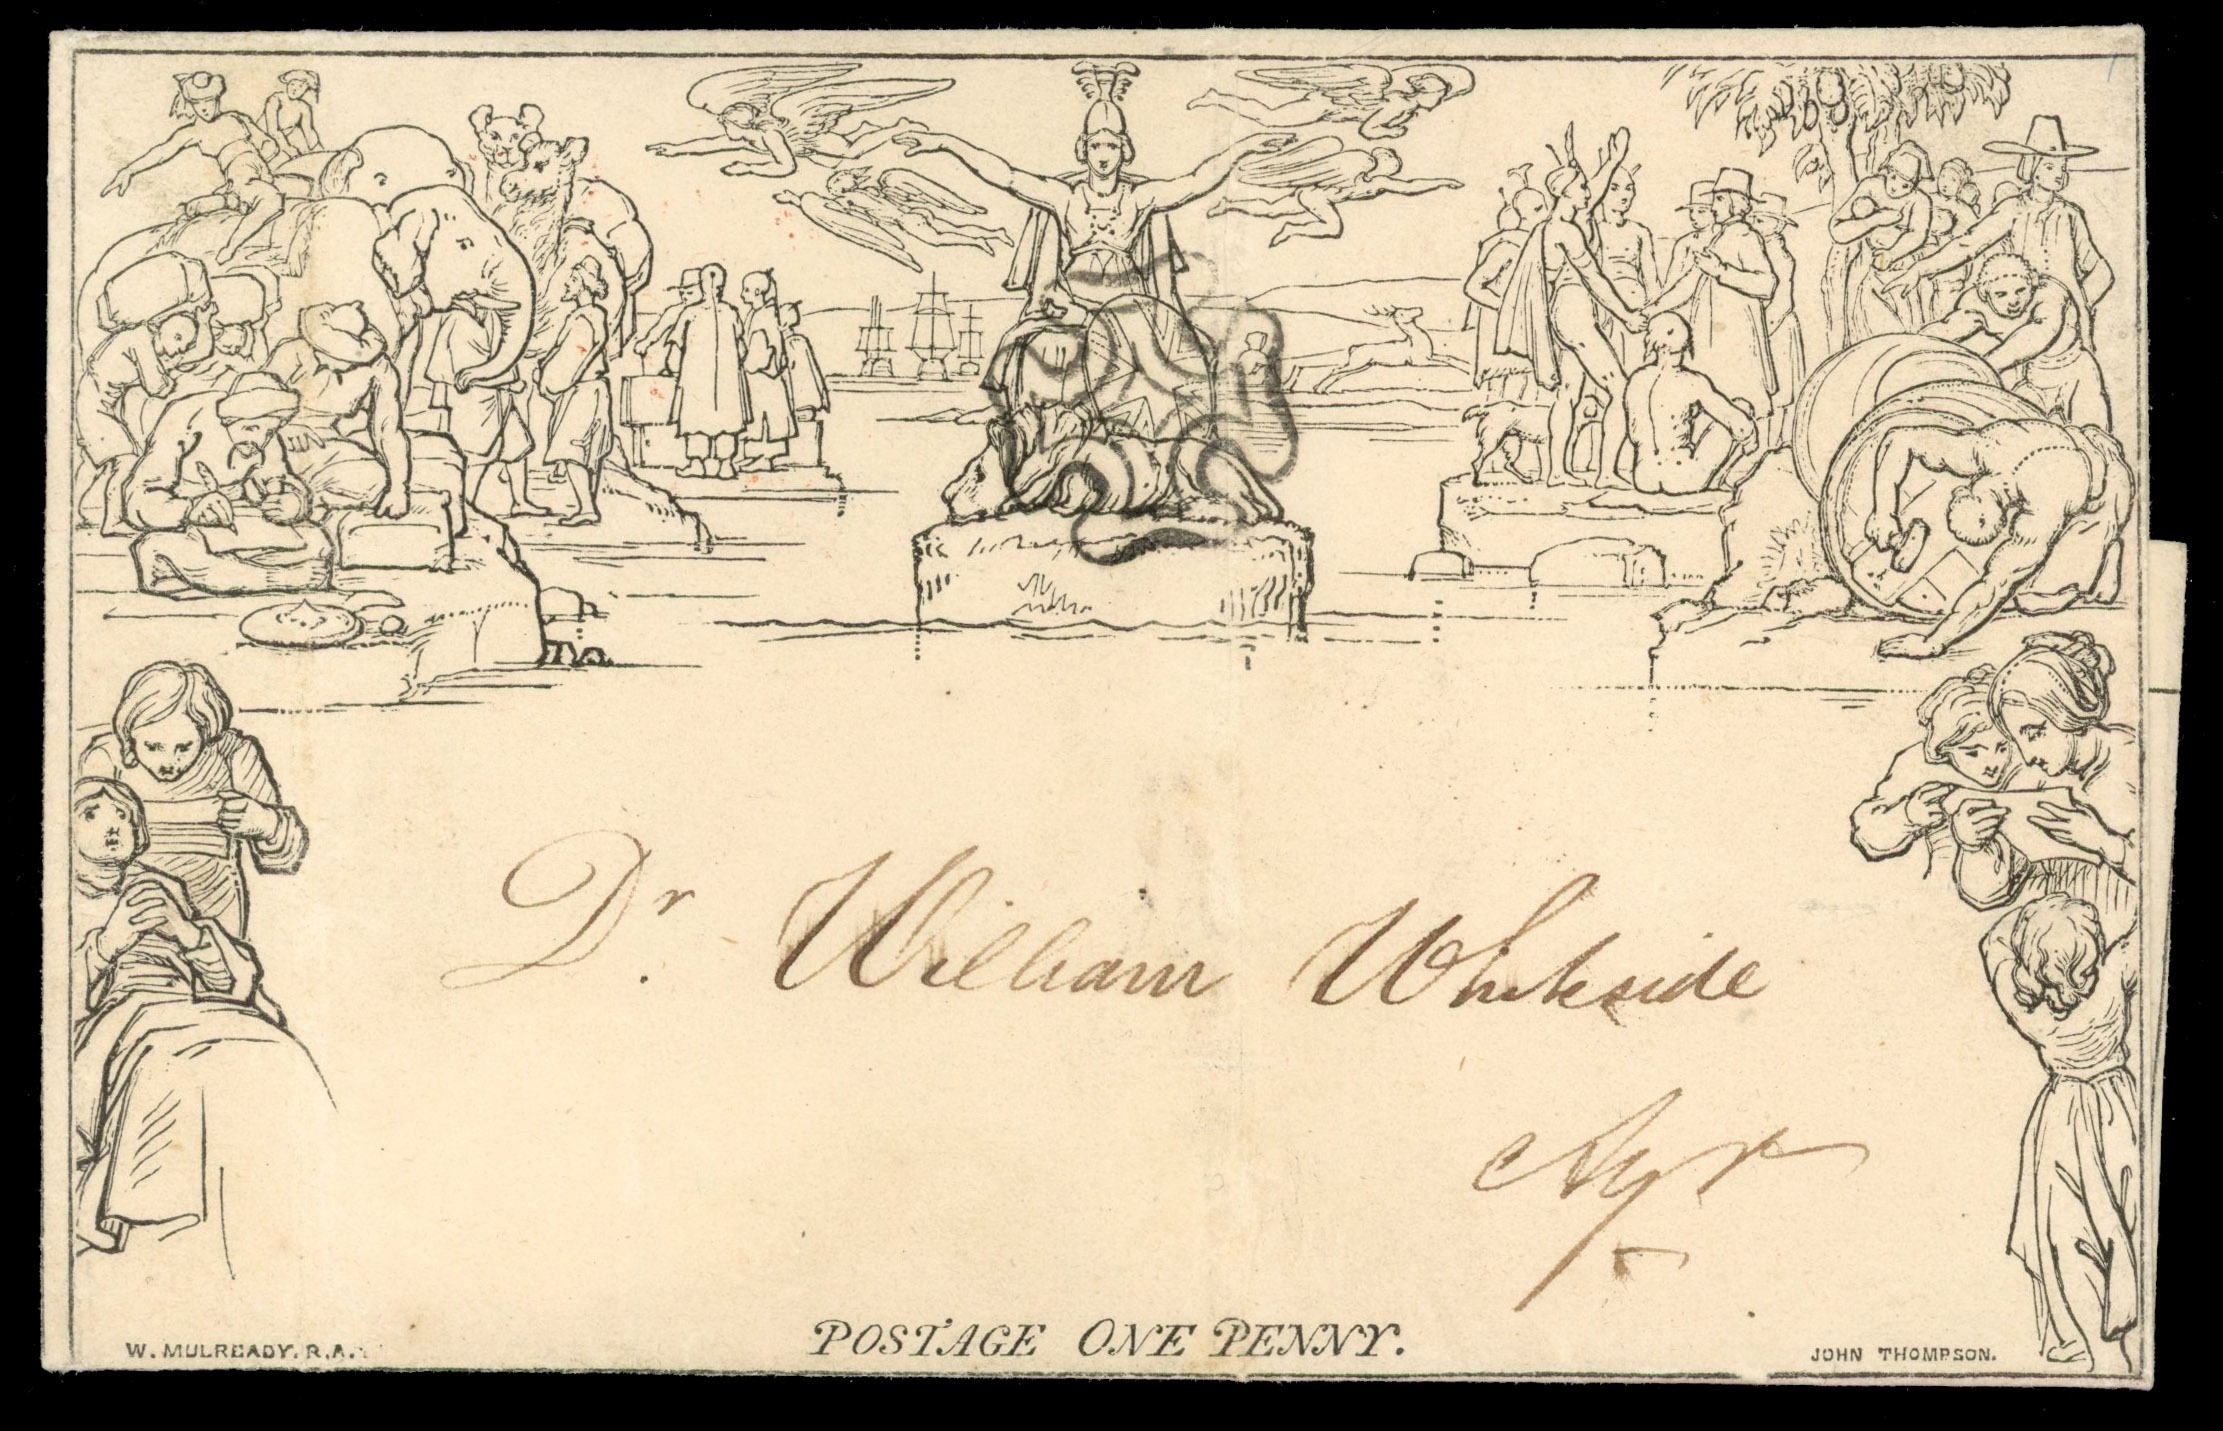 Dr. William Whiteside
Ayr
POSTAGE ONE PENNY.
W. MULREADY. R.A.
JOHN THOMPSON.